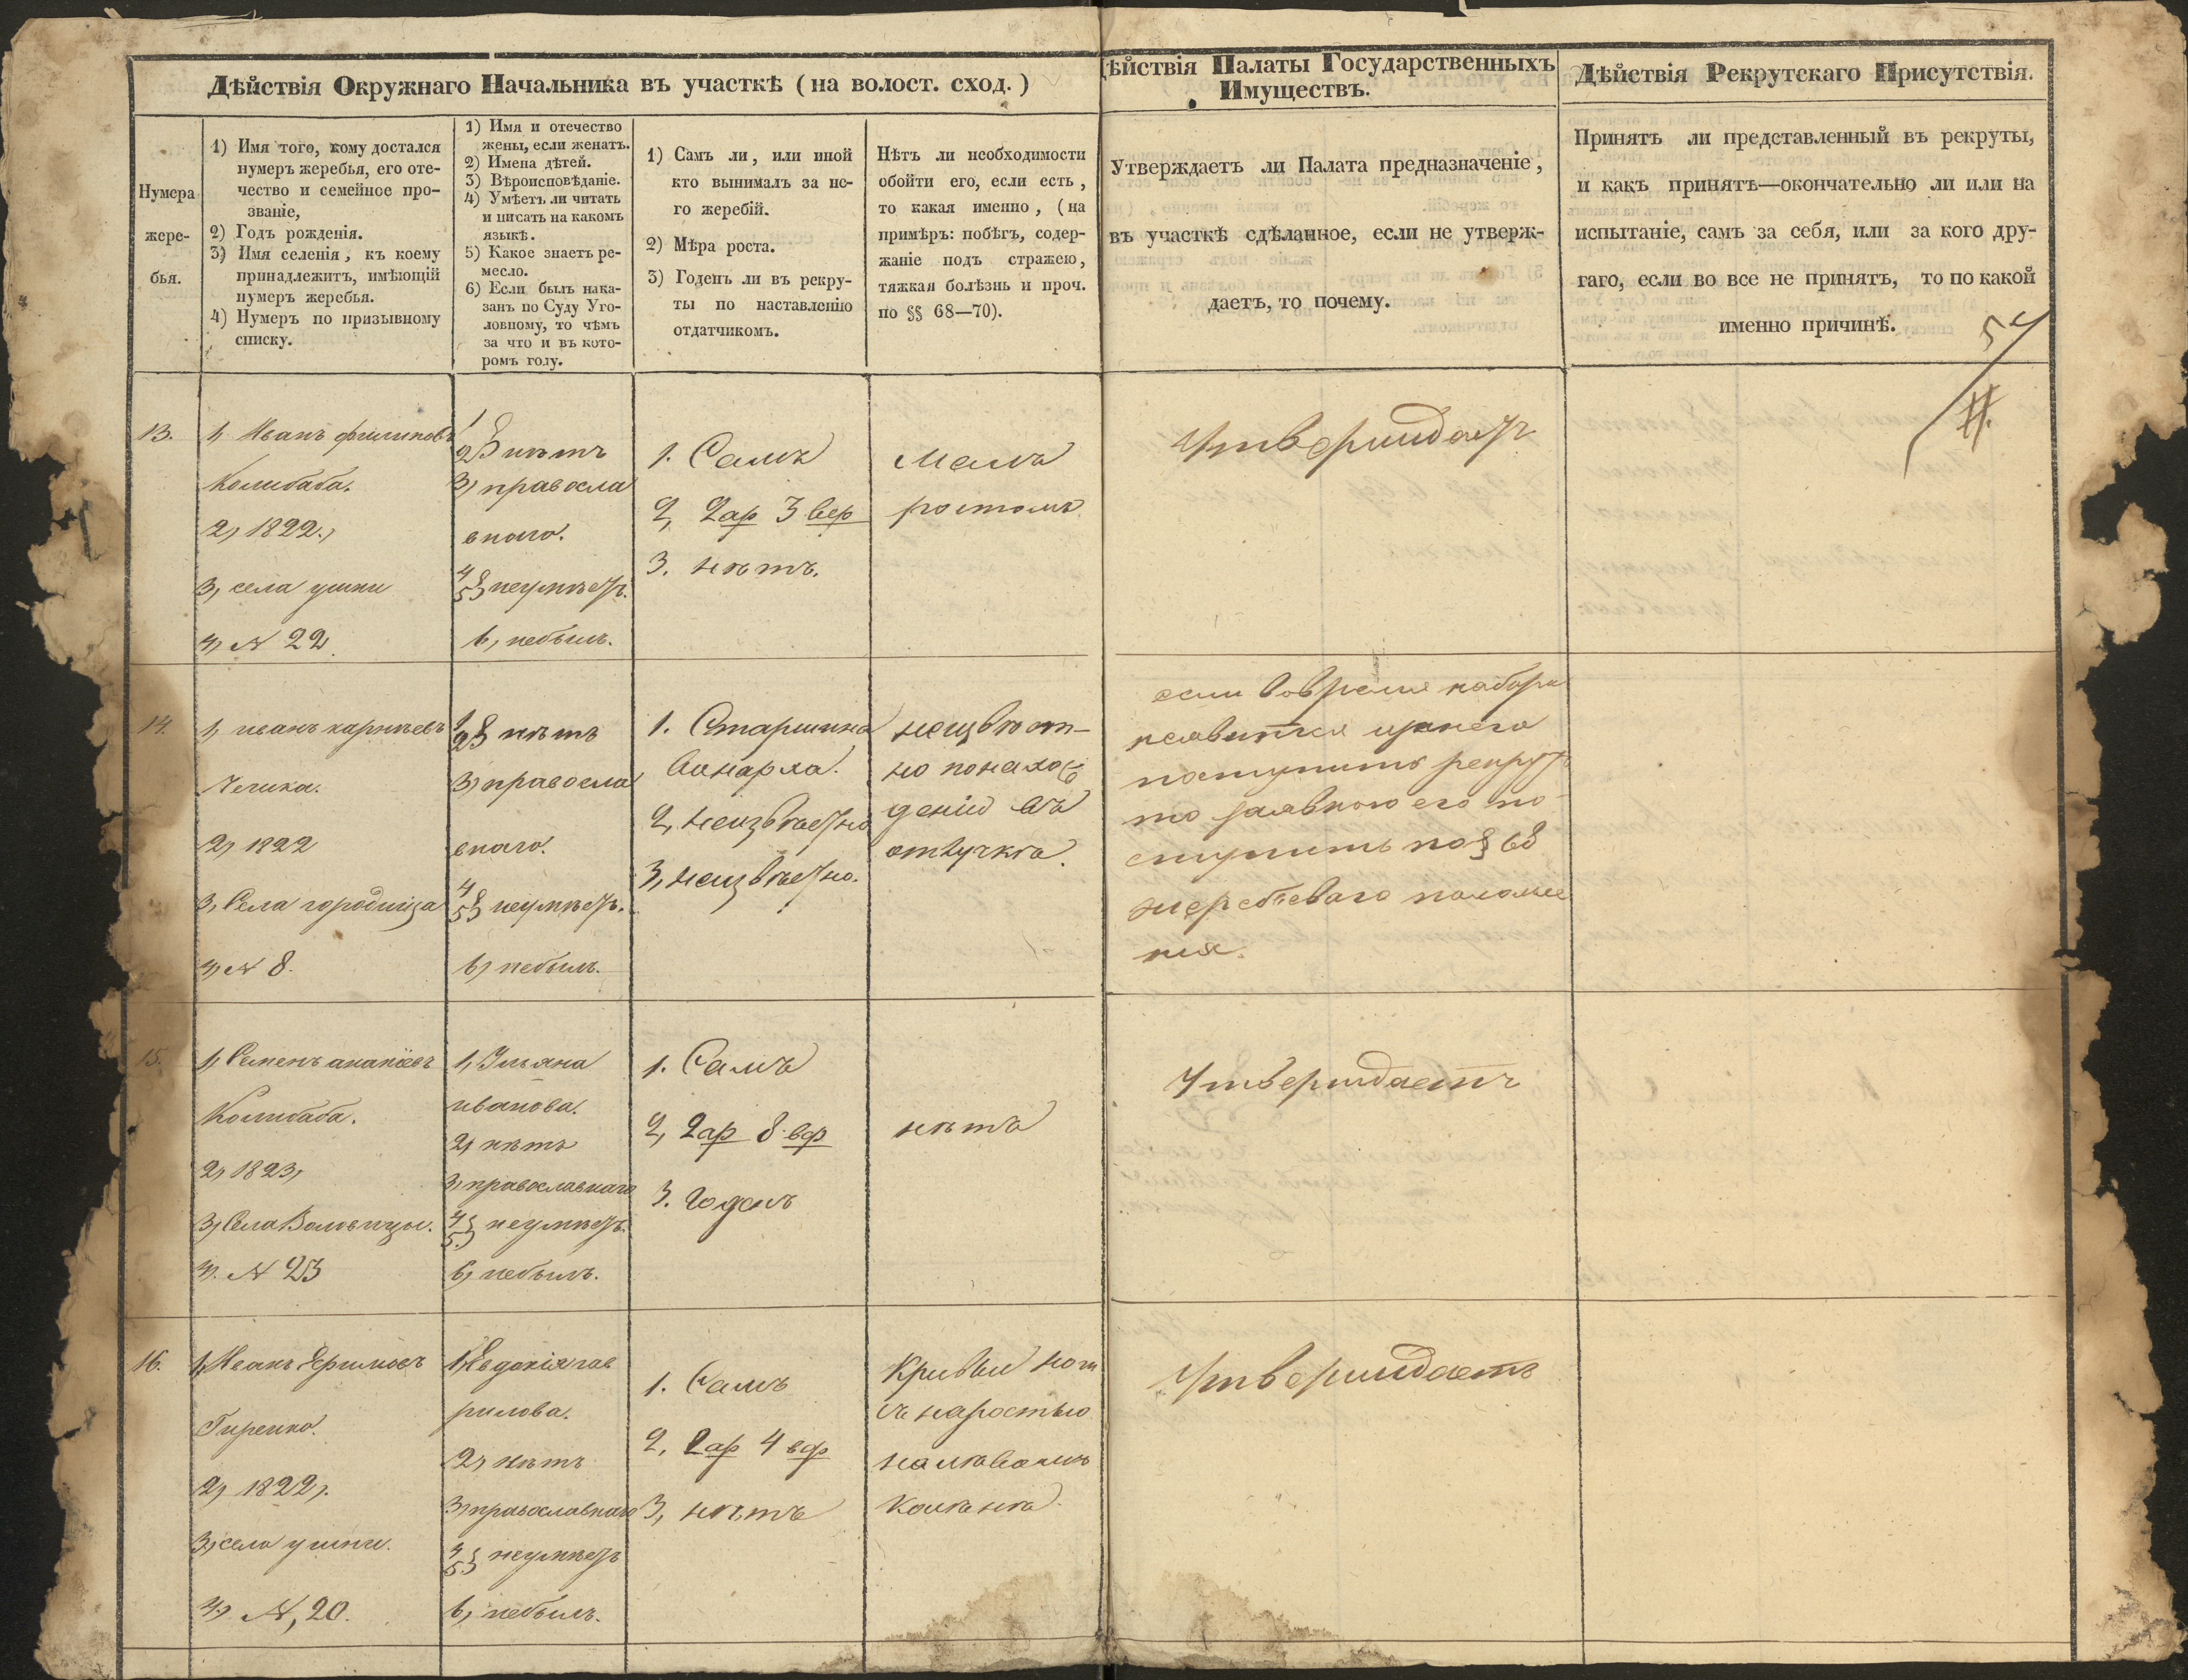 Дѣйствія Окружнаго Начальника въ участкѣ (на волост. сход.)
Нумера
жере-
бья.
1) Имя того, кому достался
нумеръ жеребья, его оте-
чество и семейное про-
званіе,
2) Годъ рожденія.
3) Имя селенія, къ коему
принадлежитъ, имѣющій
нумеръ жеребья.
4) Нумеръ по призывному
списку.
1) Имя и отечество
жены, если женатъ.
2) Имена дѣтей.
3) Вѣроисповѣданіе.
4) Умѣетъ ли читать
и писать на какомъ
языкѣ.
5) Какое знаетъ ре-
месло.
6) Если былъ нака-
занъ по Суду Уго-
ловному, то чѣмъ
за что и въ кото-
ромъ году.
1) Самъ ли, или иной
кто вынималъ за не-
го жеребій.
2) Мѣра роста.
3) Годенъ ли въ рекру-
ты по наставленію
отдатчикомъ.
Нѣтъ ли необходимости
обойти его, если есть,
то какая именно, (на
примѣръ: побѣгъ, содер-
жаніе подъ стражею,
тяжкая болѣзнь и проч.
по §§ 68—70).
ѣйствія Палаты Государственныхъ
Имуществъ.
Утверждаетъ ли Палата предназначеніе,
въ участкѣ сдѣланное, если не утверж-
даетъ, то почему.
Дѣйствія Рекрутскаго Присутствія.
Принятъ ли представленный въ рекруты,
и какъ принятъ—окончательно ли или на
испытаніе, самъ за себя, или за кого дру-
гаго, если во все не принятъ, то по какой
именно причинѣ.
13.
1, Иванъ филиповъ
Колибаба.
2, 1822.,
3, села ушни
4, N 22.
1
2} нѣтъ
3, правосла
внаго.
4
5} неумѣетъ.
6, небылъ.
1. Самъ
2, 2 ар 3 вер
3. нѣтъ.
Малъ
ростомъ
Утверждаетъ
14.
1, иванъ карпѣевъ
2, 1822
3, Села городища
4, N 8.
1
2} нѣтъ
3, правосла
внаго.
4
5} неумѣетъ.
6, небылъ.
1. Старшина
2, неизвѣстно
3, неизвѣстно.
неизвѣст-
но по нахож
денію въ
отлучкѣ.
если вовремя набора
неявится и занего
поступитъ рекрутъ
то заявкою его по-
ступить по § 68
жеребьеваго положе
нія.
15.
1, Семенъ ананіевъ
Колибаба.
2, 1823,
3, Села Воловицы.
4. N 23
1, Ульяна
иванова.
2, нѣтъ
3, православнаго
4
5} неумѣетъ.
6, небылъ.
1. Самъ
2, 2 ар 8 вер
3. Годенъ
нѣтъ
Утверждаетъ
16.
1, Иванъ Ефимовъ
Гиренко.
2, 1822,.
3, села ушни.
4, N, 20.
1, Евдокія гав
рилова.
2, нѣтъ
3, православнаго
4
5} неумѣетъ
6, небылъ.
1. Самъ
2, 2 ар 4 вер
3, нѣтъ
Кривыи ноги
съ наростью
на лѣвомъ
колѣнѣ.
Утверждаетъ